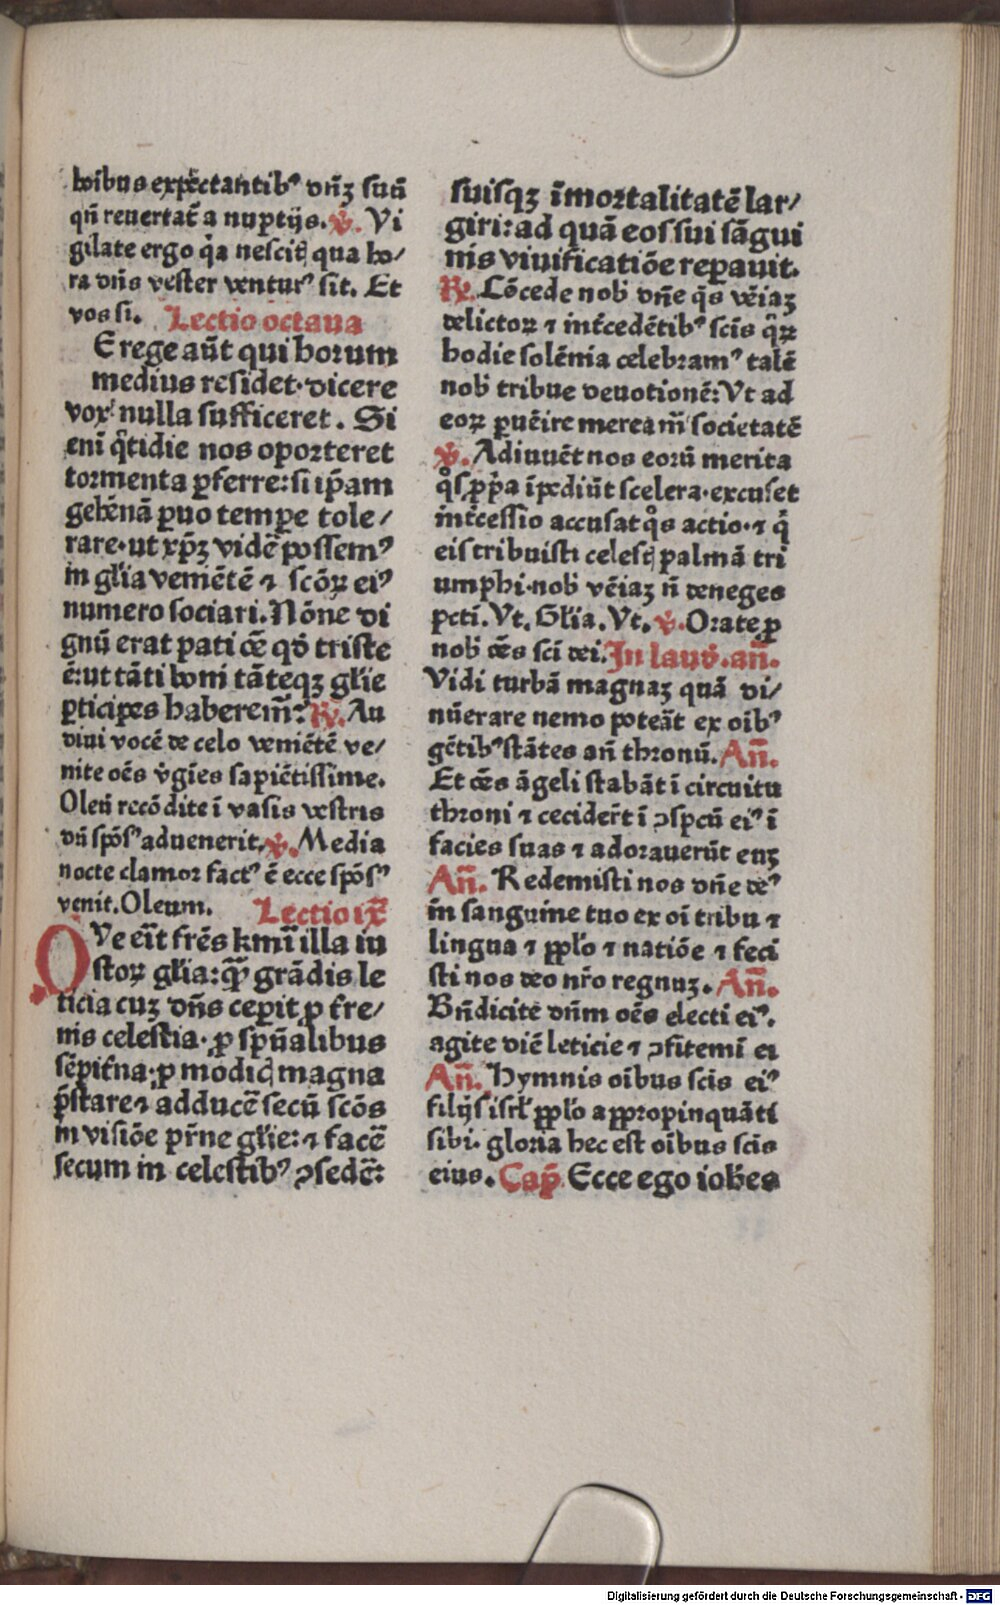 hoibus expectantibꝰ dn̄ꝫ suū
qn̄ reuertat᷑ a nuptijs. ℣. Vi
gilate ergo q̇a nescitꝭ qua ho/
ra dn̄s vester venturꝰ sit. Et
vos si. Lectio octaua
E rege aūt qui horum
medius residet· dicere
vox nulla sufficeret. Si
eni q̄tidie nos oporteret
tormenta ꝑferre: si ip̄am
gehēnā ꝑuo tempe tole/
rare· ut xp̄ꝫ vidē possemꝰ
in gl̄ia veniētē ⁊ scōꝝ eiꝰ
numero sociari. Nōne di
gnū erat pati oē qd̓ triste
ē: ut tāti boni tāteqꝫ gl̄ie
ꝑticipes haberem̄: ℟. Au
diui vocē de celo veniētē ve/
nite oēs v̓gīes sapiētissime.
Oleū recōdite ī vasis vestris
dū spōsꝰ aduenerit. ℣. Media
nocte clamor factꝰ ē ecce spōsꝰ
venit. Oleum. Lectio ix̄
OVe eīt frēs kmī illa iu
stoꝝ gl̄ia: qꝫ̄ grādis le
ticia cuꝫ dn̄s ceperit ꝑ tre/
nis celestia· ꝓ spūalibus
sēpit̄na· ꝓ modicꝭ magna
p̄stare ⁊ adducē secū scōs
in visiōe pr̄ne gl̄ie: ⁊ facē
secum in celestibꝰ ↄsedē:
suisqꝫ īmortalitatē lar/
giri: ad quā eos sui sāgui
nis viuificatiōe reparauit.
℟. Cōcede nob̄ dn̄e q̄s vēiaꝫ
delictoꝝ ⁊ int̄cedētibꝰ scīs qͦꝝ
hodie solēnia celebramꝰ talē
nob̄ tribue deuotionē: Vt ad
eoꝝ ꝑuēire meream̄ societatē
℣. Adiuuēt nos eorū merita
qͦs ꝓp̄a īpediūt scelera· excuset
int̄cessio accusat qͦs actio· ⁊ q̇
eis tribuisti celestꝭ palmā tri
umphi· nob̄ vēiaꝫ n̄ deneges
pcti. Vt. Gl̄ia. Vt. ℣. Orate ꝓ
nob̄ oēs scī dei. In laud̓. an̄.
Vidi turbā magnaꝫ quā di/
nūerare nemo poteāt ex oibꝰ
gētibꝰ stātes an̄ thronū. An̄.
Et oēs āgeli stabāt ī circuitu
throni ⁊ cecider̄t ī ↄspcū eiꝰ ī
facies suas ⁊ adorauerūt euꝫ
An̄. Redemisti nos dn̄e deꝰ
in sanguine tuo ex oī tribu ⁊
lingua ⁊ ppl̄o ⁊ natiōe ⁊ feci
sti nos deo nr̄o regnuꝫ. An̄.
Bn̄dicite dn̄m oēs electi eiꝰ.
agite diē leticie ⁊ ↄfitemī ei
An̄. Hymnis oībus scīs eiꝰ
filijs isrl̄ ppl̄o appropinquāti
sibi· gloria hec est oībus scīs
eius. Cap̄. Ecce ego ioh̄es
Digitalisierung gefördert durch die Deutsche Forschungsgemeinschaft · DFG